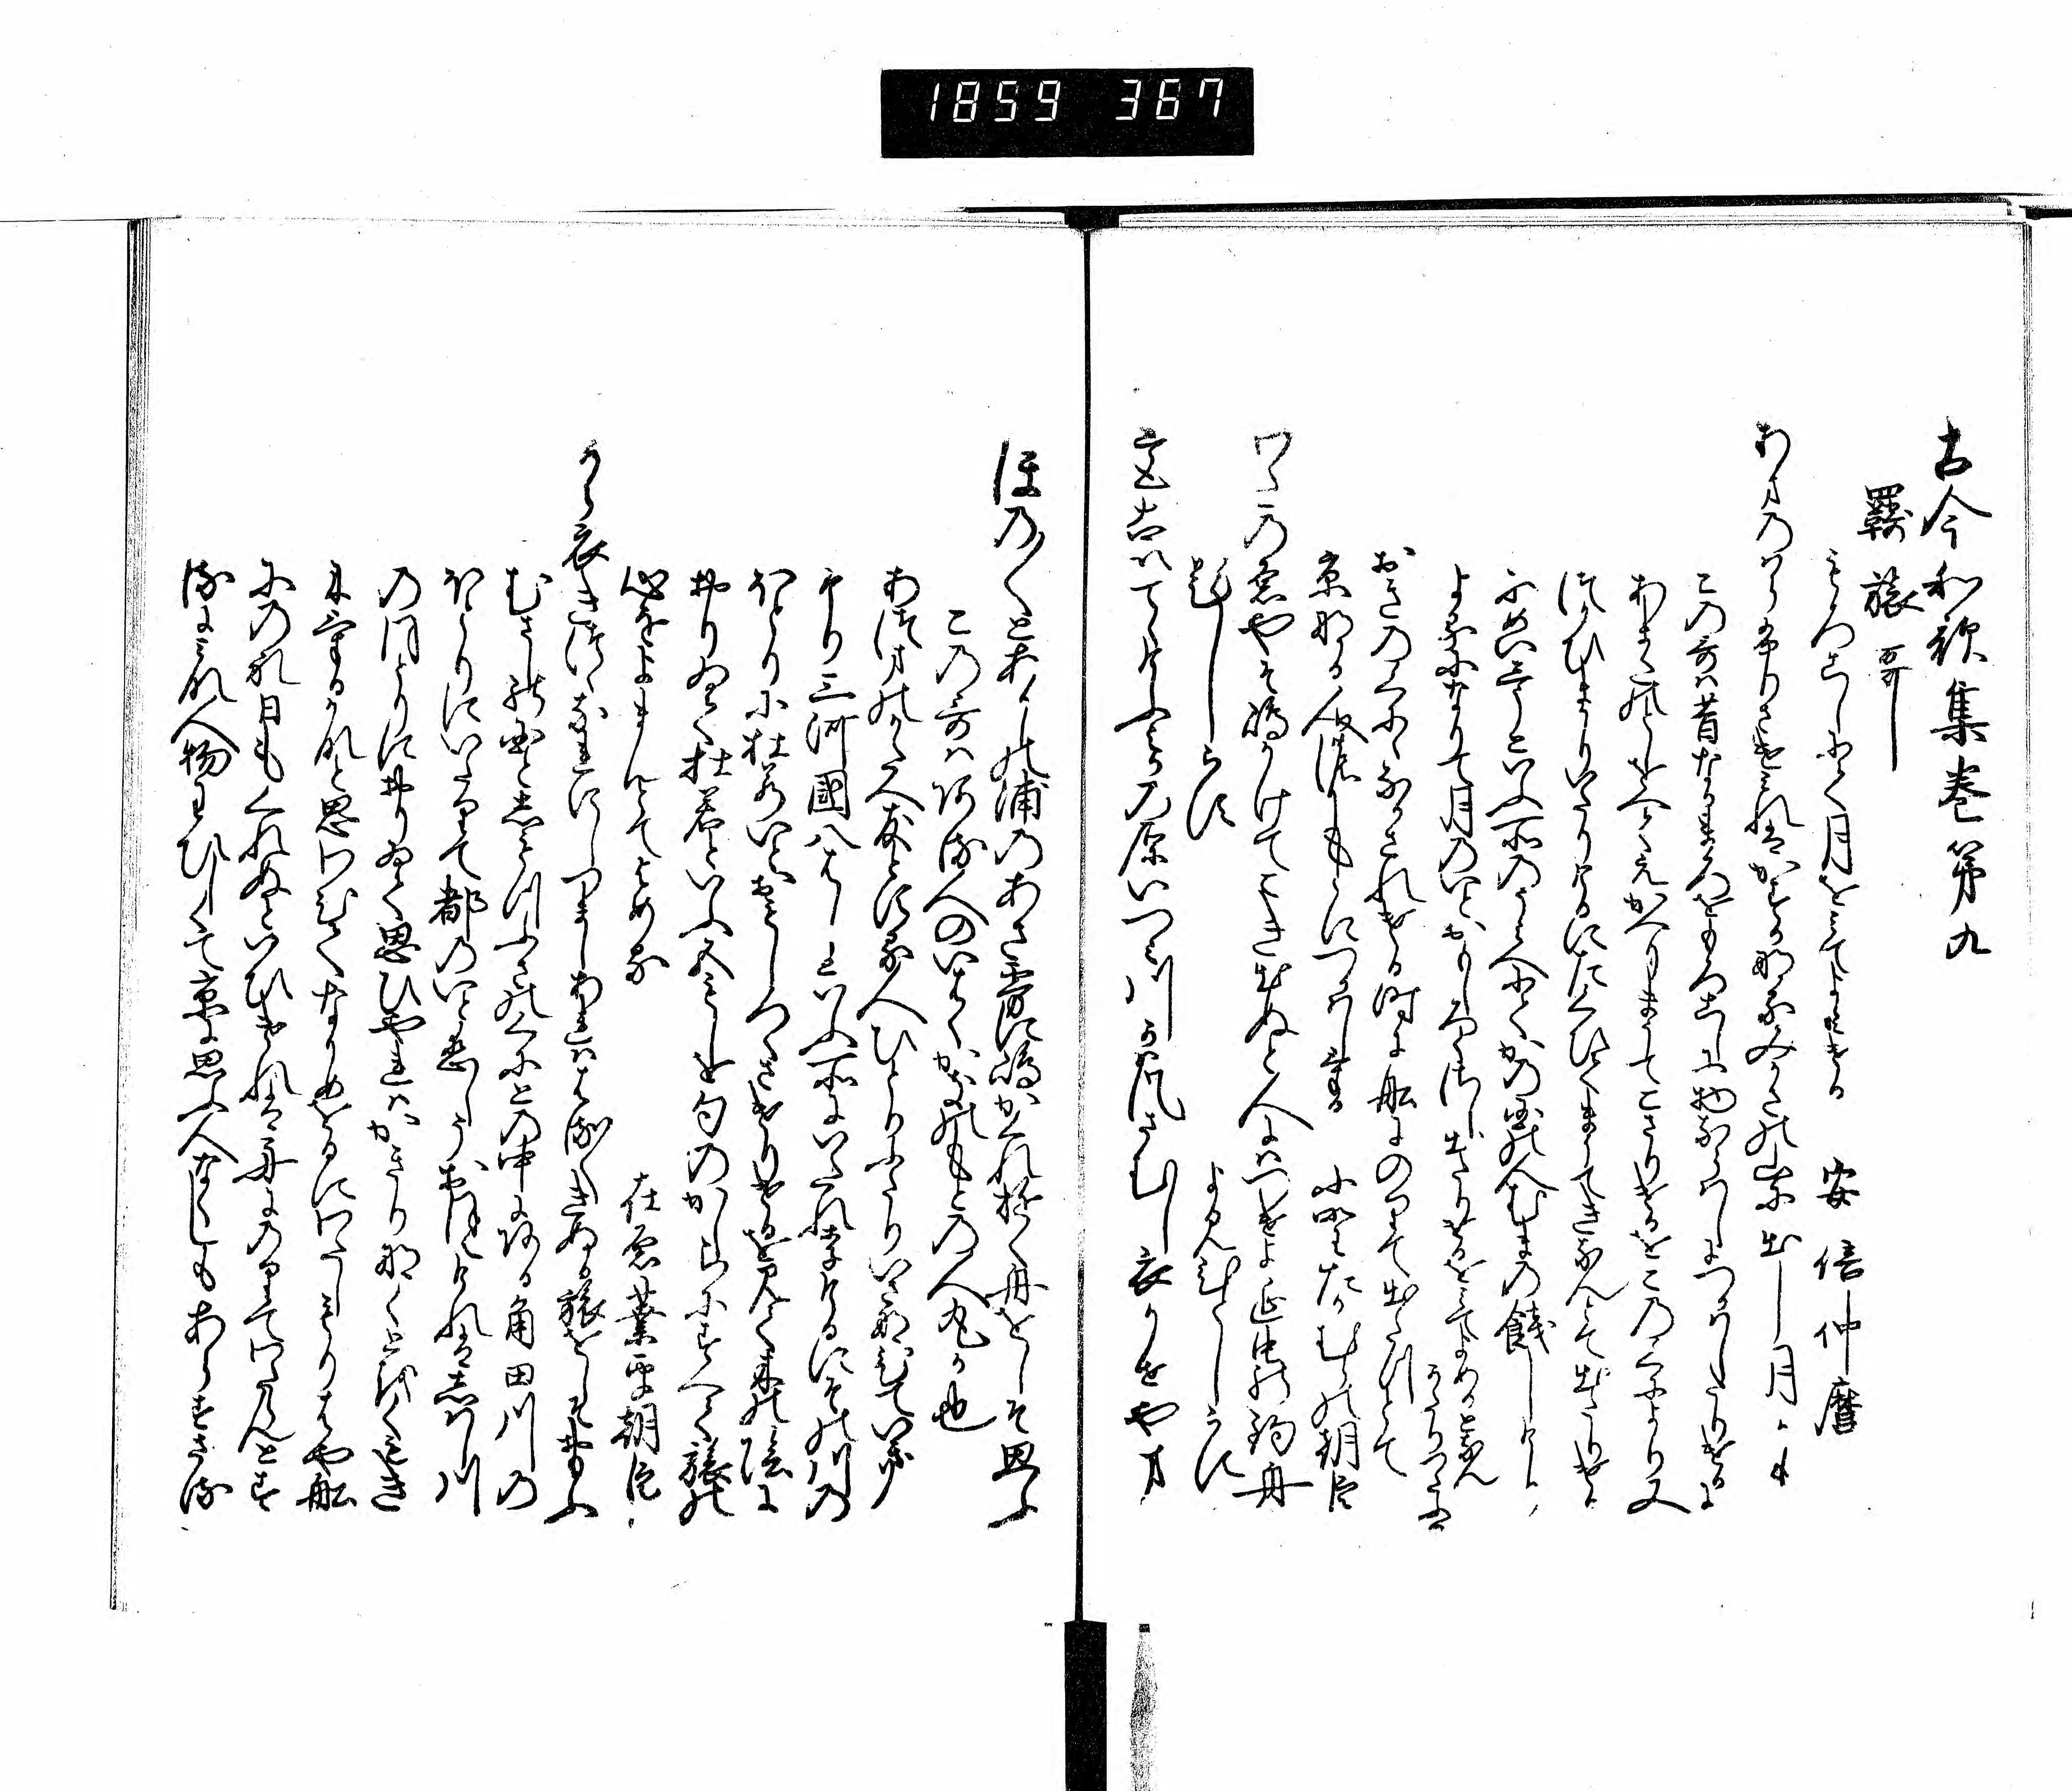 1859 367
古今和歌集巻第九
羇旅哥
もろこしにて月を見てよみける 安倍仲麿
あまのはらふりさけみれはかすかなるみかさの山に出し月かも
この哥は昔なかまろをもろこしに物ならはしにつかはしたりけるに
あまたのとしをへてえかへりまうてこさりけるをこのくにより又
つかひまかりいたりけるにたくひてまうてきなんとて出たちけるに
めいしうといふ所のうみへにてかの国の人むまの餞しけり
よるになりて月のいとおもしろくさし出たりけるをみてよめるとなん
かたりつたふる
おきのくにになかされける時に船にのりて出たつとて
京なる人のもとにつかはしける 小野たかむらの朝臣
わたの原やそ嶋かけてこき出ぬと人にはつけよ海士の釣舟
題しらす よみ人しらす
都出てけふみかの原いつみ川かは風さむし衣かせ山
ほの〱と明石の浦のあさ霧に嶋かくれ行舟をしそ思ふ
この哥はある人のいはくかきのもとの人丸か也
あつまのかたへ友とする人ひとりふたりいさなひていき
けり三河國八はしといふ所にいたれりけるにその川の
ほとりに杜若いとおもしろくさけりけるを見て木の陰に
おりゐてかきつはたといふ五もしを句のかしらにすへて旅の
心をよまんとてよめる 在原業平朝臣
から衣きつゝなれにしつましあれははる〱きぬる旅をしそ思ふ
むさしの国と下つふさのくにとの中にある角田川の
ほとりにいたりて都のいと恋しうおほえけれはしはし川
のほとりにおりゐて思ひやれはかきりなくとをくもき
にけるかなと思ひわひてなかめをるにわたしもりはや船
にのれ日もくれぬといひけれは舟にのりてわたらんとす
るにみな人物わひしくて京に思ふ人なくしもあらすさる